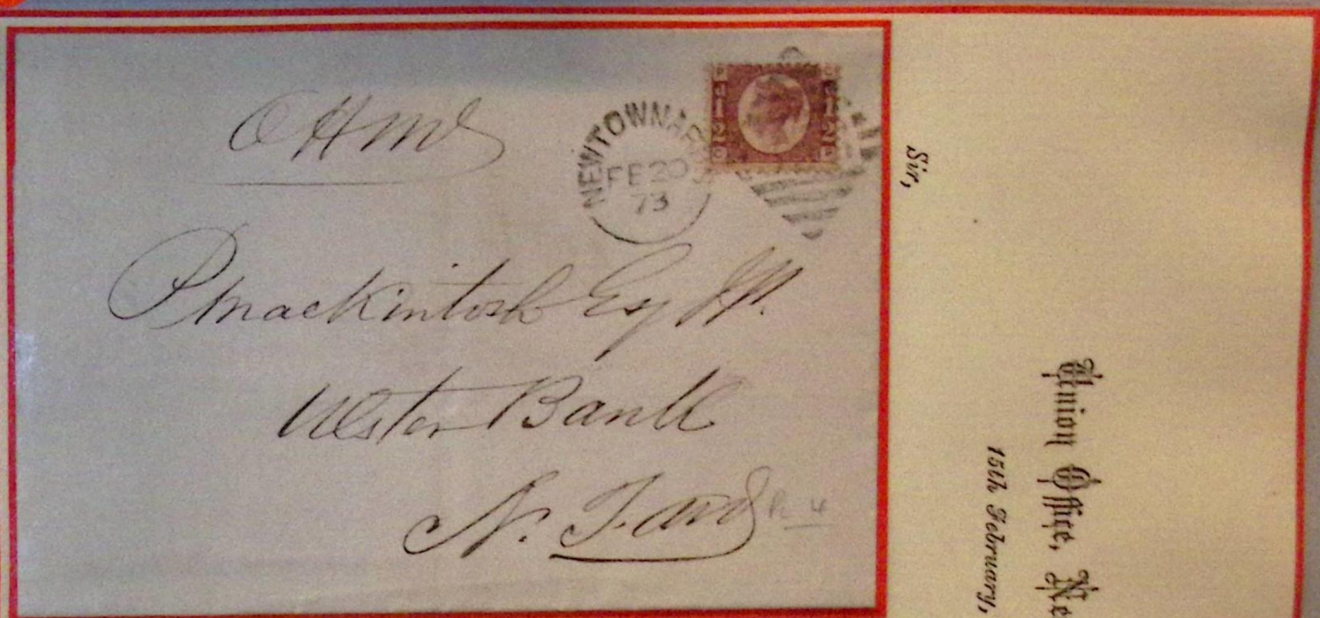 OHMS
NEWTOWNARDS
FE 20
73
P Mackintosh Esq JP.
Ulster Bank
N. T. ards
Sir,
Union Office, Ne
15th February,